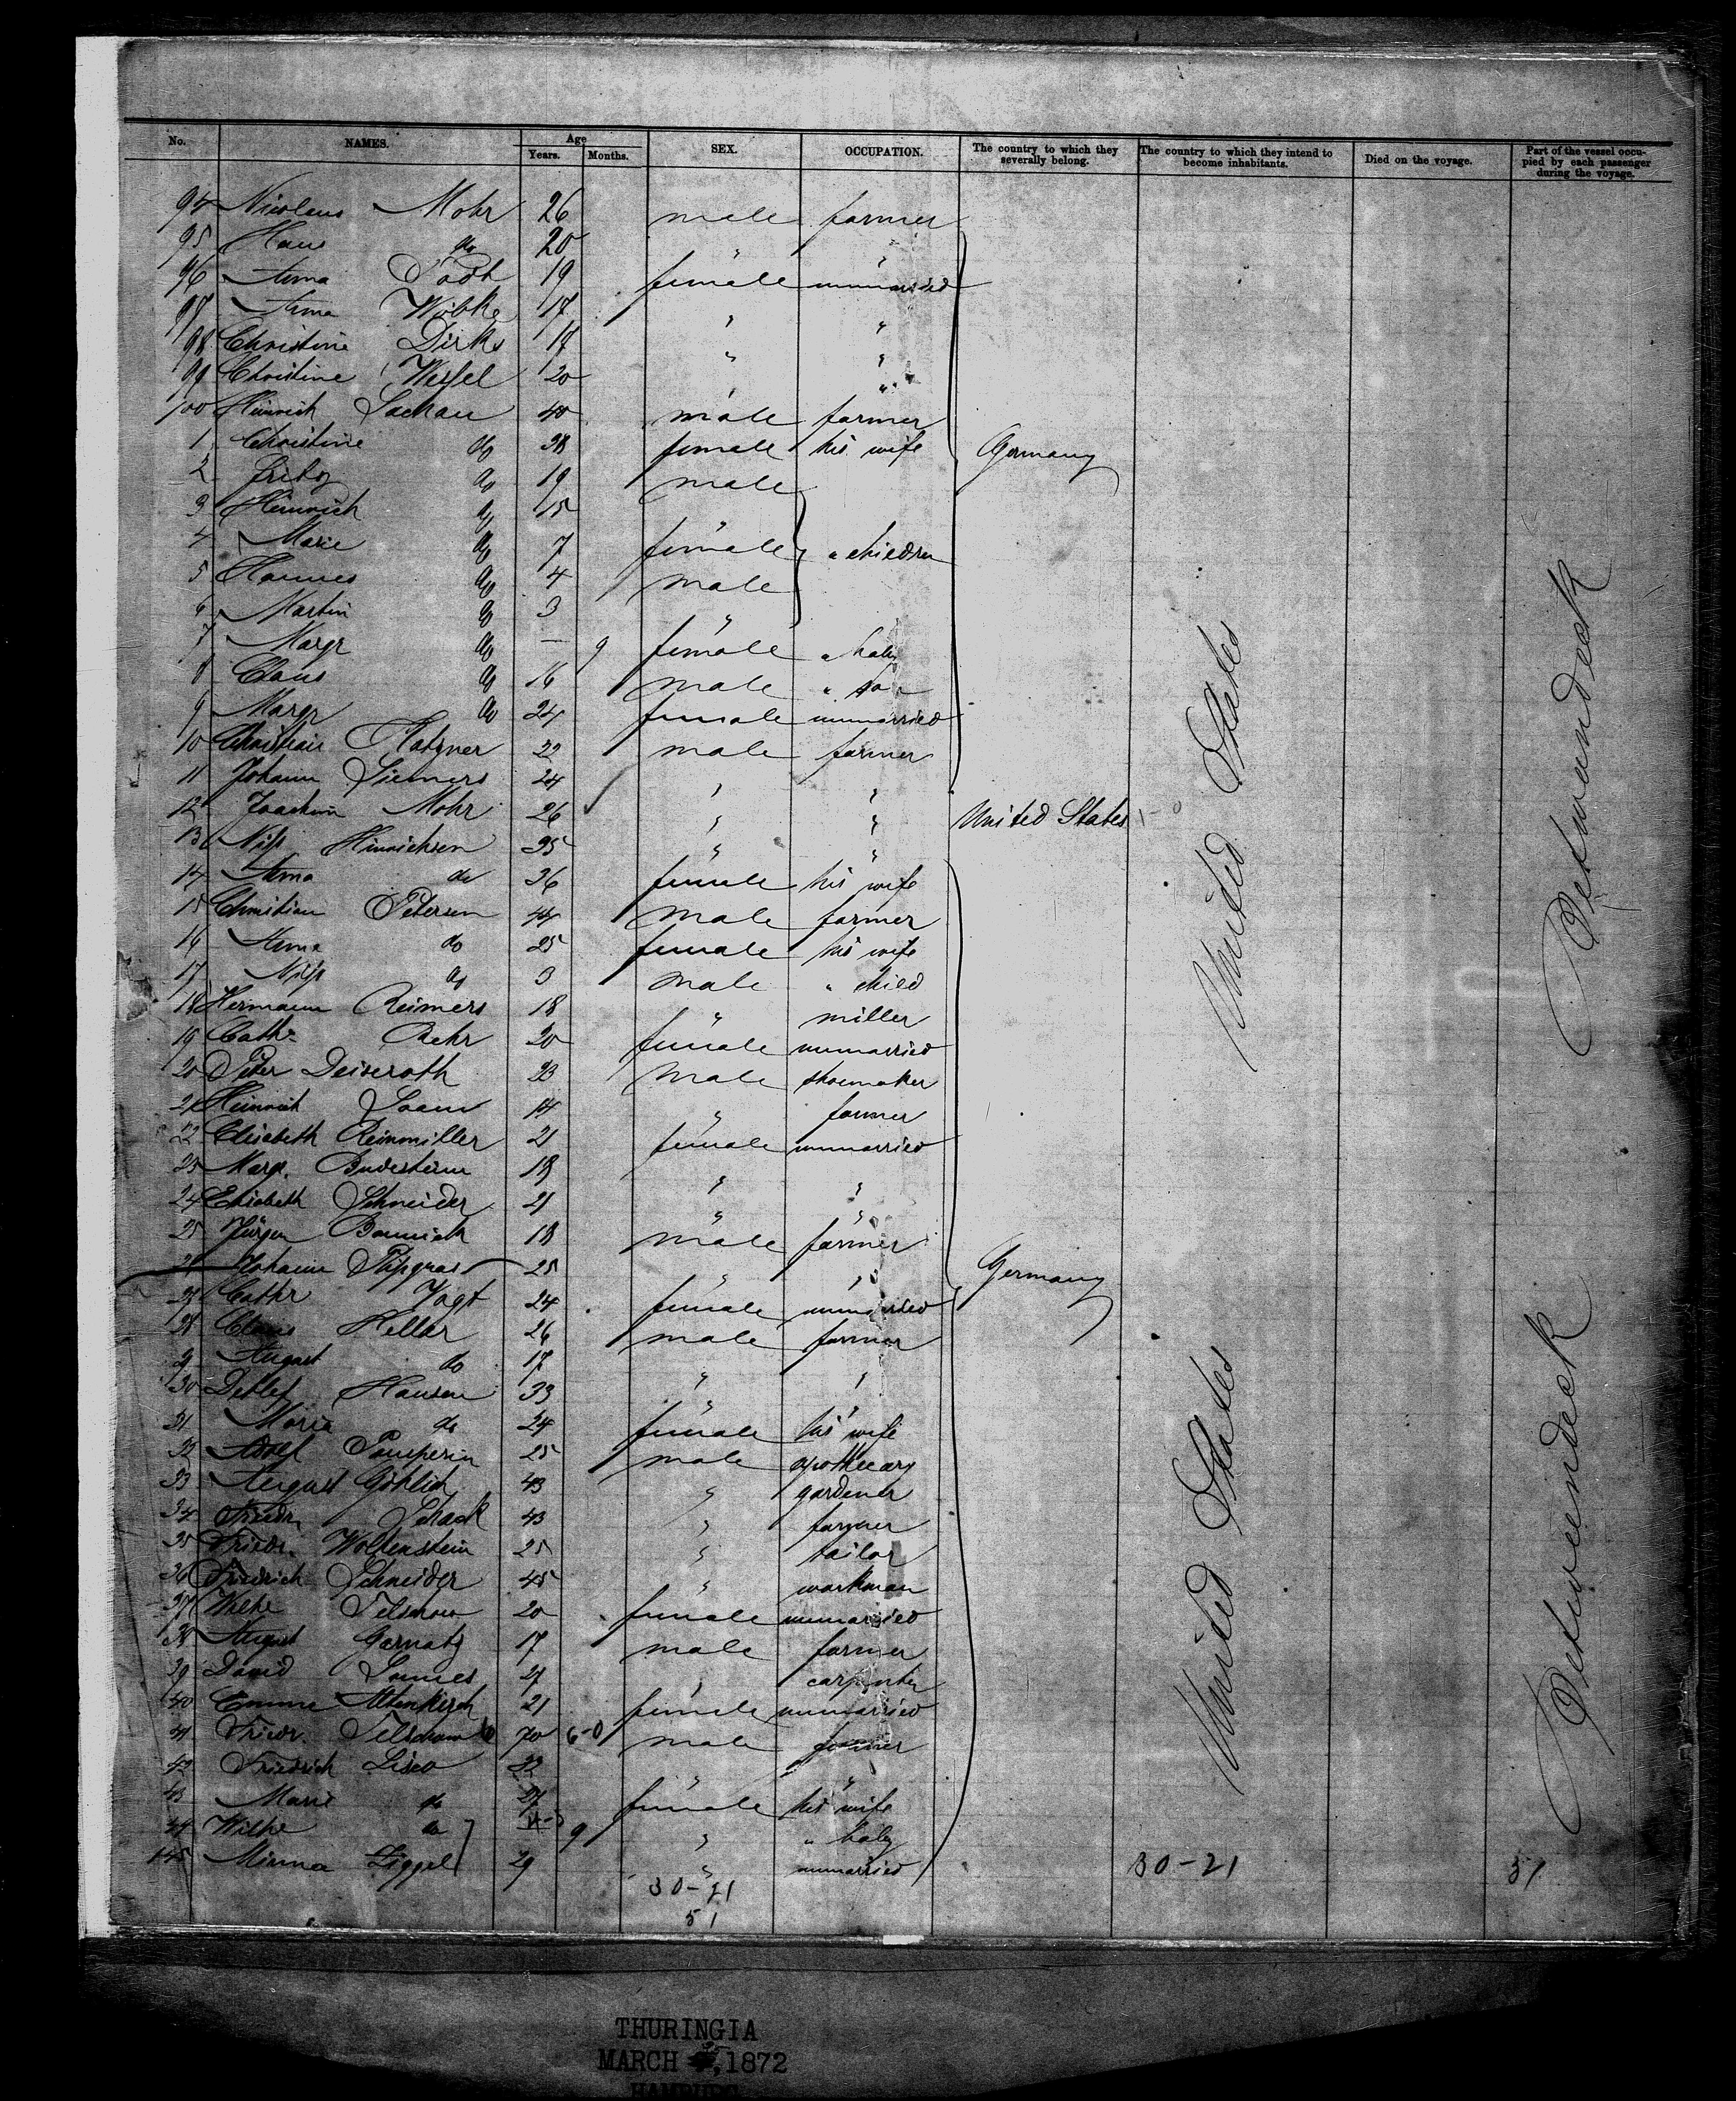 No. NAMES. Age Years. Months. SEX. OCCUPATION. The country to which they severally belong. The country to which they intend to become inhabitants. Died on the voyage. Part of the vessel occupied by each passenger during the voyage.
94 Nicolaus Mohr 26 male farmer
95 Hans do 20 " "
96 Anna Todt 19 female unmarried
97 Anna Wöbke 17 " "
98 Christine Dirks 17 " "
99 Christine Wessel 20 " "
100 Heinrich Lackau 40 male farmer
1 Christine do 38 female his wife Germany
2 Fritz do 19 male
3 Heinrich do 15 "
4 Marie do 7 female " children
5 Hannes do 4 male
6 Martin do 3 "
7 Margr do — 9 female " baby
8 Claus do 16 male " son
9 Margr do 24 female unmarried
10 Christian Platzner 22 male farmer
11 Johann Siemers 24 " "
12 Joachim Mohr 26 " " United States
13 Niss Hinrichsen 35 " "
14 Anna do 36 female his wife
15 Christian Petersen 44 male farmer
16 Anna do 25 female his wife
17 Niss do 3 male " child
18 Hermann Reimers 18 " miller
19 Cathr Behr 20 female unmarried
20 Peter Deiseroth 23 male shoemaker
21 Heinrich 14 " farmer
22 Elisabeth Reinmiller 21 female unmarried
23 Margr. 18 " "
24 Elisabeth Schneider 21 " "
25 Jürgen 18 male farmer
26 Johann Pipgras 25 " " Germany
27 Cathr Vogt 24 female unmarried
28 Claus Hellar 26 male farmer
29 August do 17 " "
30 Detlef Hansen 33 " "
31 Maria do 24 female his wife
32 Adolf 25 male apothecary
33 August Göhlich 43 " gardener
34 Friedr Schack 43 " farmer
35 Friedr. Woltenstein 25 " tailor
36 Friedrich Schneider 45 " workman
37 Wilhe Telschow 20 female unmarried
38 August Garnatz 17 male farmer
39 David 21 " carpenter
40 Emma Altenkirch 21 female unmarried
41 Friedr. Telschow 70 6-0 male farmer
42 Friedrich Lisco 22 " "
43 Marie do 27 female his wife
44 Wilhe do 9 " " baby
145 Minna Liggel 29 " unmarried
United States
United States
Betweendeck
Betweendeck
30-21 30-21 51
51
THURINGIA
MARCH 25, 1872
HAMBURG